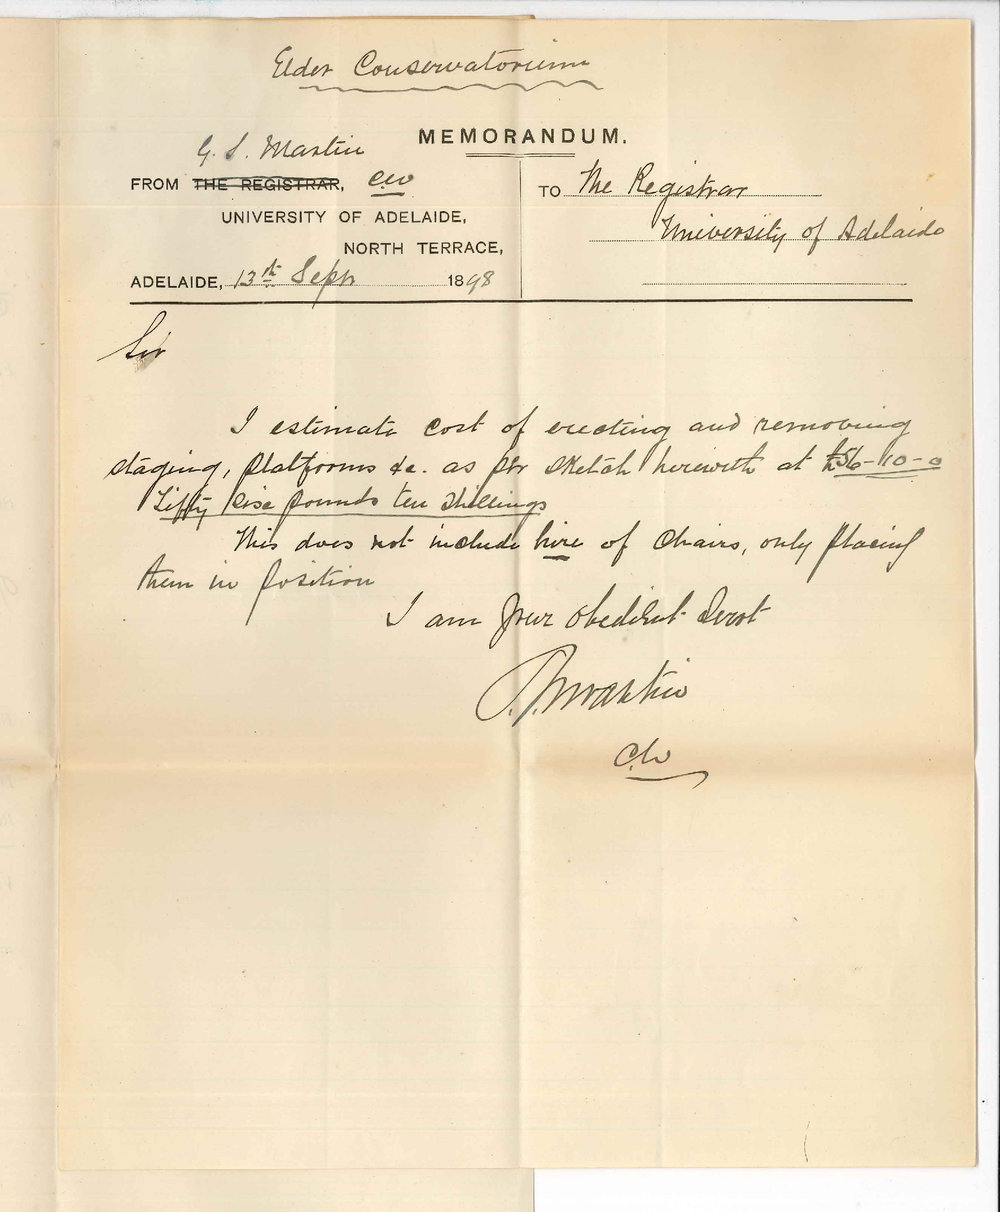 Elder Conservatorium
MEMORANDUM.
G. S. Martin
FROM THE REGISTRAR, C.W
UNIVERSITY OF ADELAIDE,
NORTH TERRACE,
ADELAIDE, 13th Sepr 1898
TO The Registrar
University of Adelaide
Sir
I estimate cost of erecting and removing
staging, platforms &c. as per sketch herewith at £56-10-0
Fifty six pounds ten shillings
This does not include hire of chairs, only placing
them in position
I am Your obedient Servt
Martin
C.W